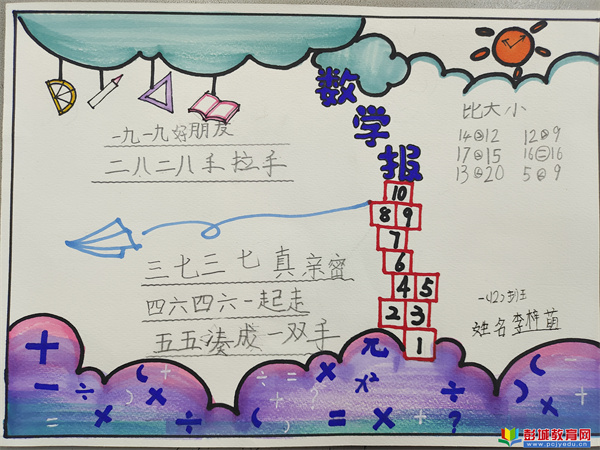 数学报
一九一九好朋友
二八二八手拉手
三七三七真亲密
四六四六一起走
五五凑成一双手
比大小
14>12 12>9
17>15 16=16
13<20 5<9
10
8 9
7
6
4 5
2 3
1
一(2)班
姓名李梓萌
+ - ÷ × ( ÷ × ( = × π x² = × ÷ ? ) × ( + ?
彭城教育网
www.pcjyedu.cn